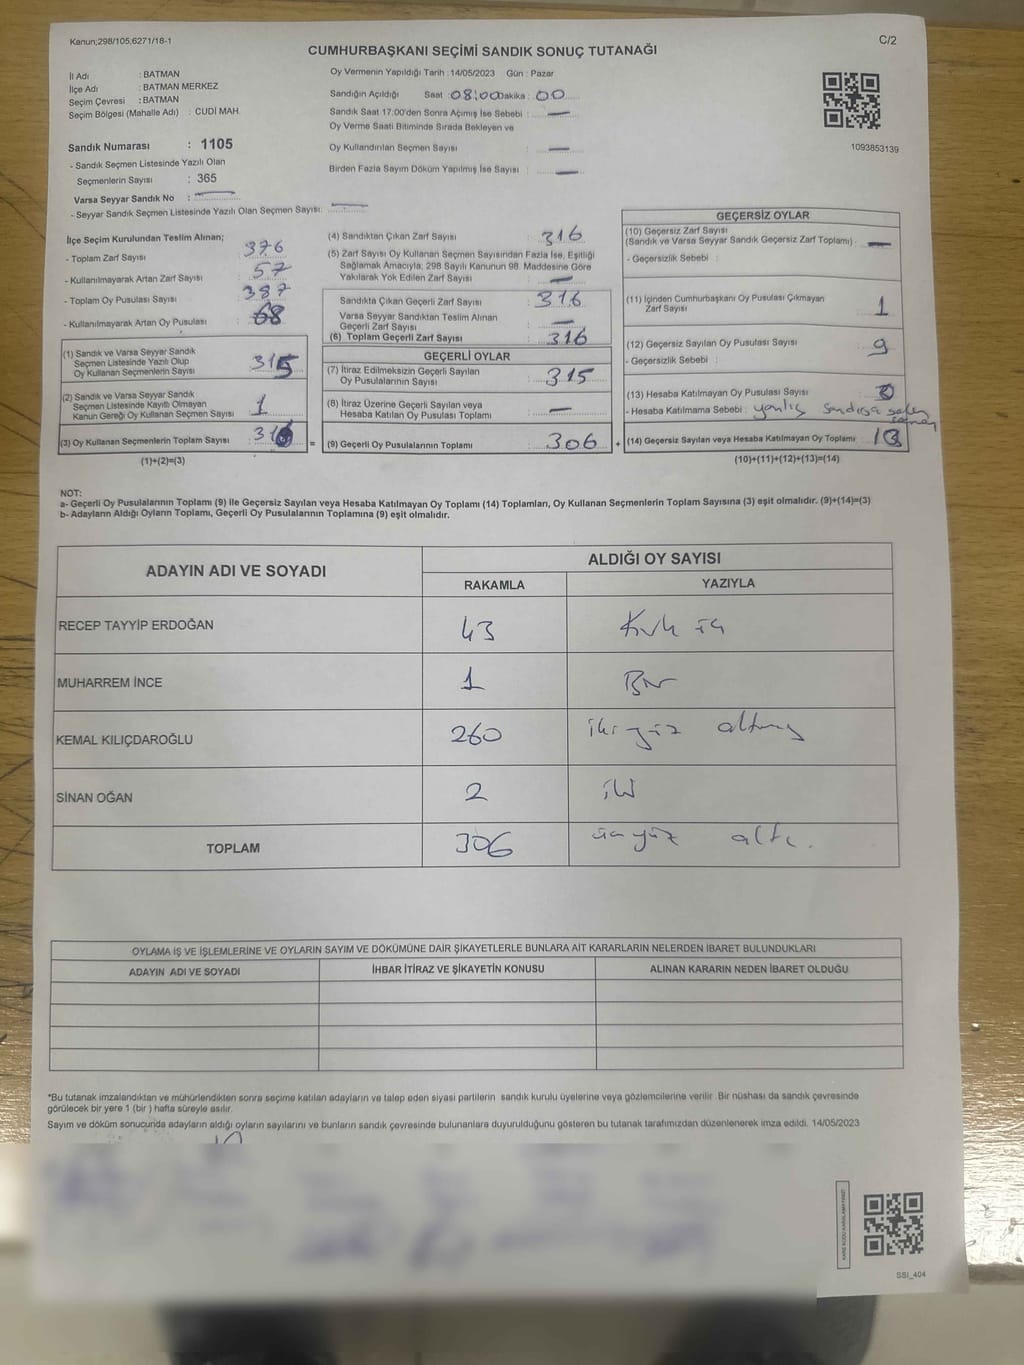 Kanun;298/105;6271/18-1
C/2
CUMHURBAŞKANI SEÇİMİ SANDIK SONUÇ TUTANAĞI
İl Adı : BATMAN
İlçe Adı : BATMAN MERKEZ
Seçim Çevresi : BATMAN
Seçim Bölgesi (Mahalle Adı) : CUDİ MAH.
Oy Vermenin Yapıldığı Tarih : 14/05/2023 Gün : Pazar
Sandığın Açıldığı Saat : 08:00 Dakika : 00
Sandık Saat 17:00'den Sonra Açımış İse Sebebi : —
Oy Verme Saati Bitiminde Sırada Bekleyen ve
Oy Kullandırılan Seçmen Sayısı : —
Birden Fazla Sayım Döküm Yapılmış İse Sayısı : —
1093853139
Sandık Numarası : 1105
- Sandık Seçmen Listesinde Yazılı Olan
Seçmenlerin Sayısı : 365
Varsa Seyyar Sandık No : —
- Seyyar Sandık Seçmen Listesinde Yazılı Olan Seçmen Sayısı: —
İlçe Seçim Kurulundan Teslim Alınan;
- Toplam Zarf Sayısı : 376
- Kullanılmayarak Artan Zarf Sayısı : 57
- Toplam Oy Pusulası Sayısı : 387
- Kullanılmayarak Artan Oy Pusulası : 68
(1) Sandık ve Varsa Seyyar Sandık
Seçmen Listesinde Yazılı Olup
Oy Kullanan Seçmenlerin Sayısı : 315
(2) Sandık ve Varsa Seyyar Sandık
Seçmen Listesinde Kayıtlı Olmayan
Kanun Gereği Oy Kullanan Seçmen Sayısı : 1
(3) Oy Kullanan Seçmenlerin Toplam Sayısı : 316
(1)+(2)=(3)
(4) Sandıktan Çıkan Zarf Sayısı : 316
(5) Zarf Sayısı Oy Kullanan Seçmen Sayısından Fazla İse, Eşitliği
Sağlamak Amacıyla, 298 Sayılı Kanunun 98. Maddesine Göre
Yakılarak Yok Edilen Zarf Sayısı : —
Sandıkta Çıkan Geçerli Zarf Sayısı : 316
Varsa Seyyar Sandıktan Teslim Alınan
Geçerli Zarf Sayısı : —
(6) Toplam Geçerli Zarf Sayısı : 316
GEÇERLİ OYLAR
(7) İtiraz Edilmeksizin Geçerli Sayılan
Oy Pusulalarının Sayısı : 315
(8) İtiraz Üzerine Geçerli Sayılan veya
Hesaba Katılan Oy Pusulası Toplamı : —
= (9) Geçerli Oy Pusulalarının Toplamı : 306
GEÇERSİZ OYLAR
(10) Geçersiz Zarf Sayısı
(Sandık ve Varsa Seyyar Sandık Geçersiz Zarf Toplamı) : —
- Geçersizlik Sebebi :
(11) İçinden Cumhurbaşkanı Oy Pusulası Çıkmayan
Zarf Sayısı : 1
(12) Geçersiz Sayılan Oy Pusulası Sayısı : 9
- Geçersizlik Sebebi :
(13) Hesaba Katılmayan Oy Pusulası Sayısı :
- Hesaba Katılmama Sebebi : yanlış sandığa
+ (14) Geçersiz Sayılan veya Hesaba Katılmayan Oy Toplamı :
(10)+(11)+(12)+(13)=(14)
NOT:
a- Geçerli Oy Pusulalarının Toplamı (9) ile Geçersiz Sayılan veya Hesaba Katılmayan Oy Toplamı (14) Toplamları, Oy Kullanan Seçmenlerin Toplam Sayısına (3) eşit olmalıdır. (9)+(14)=(3)
b- Adayların Aldığı Oyların Toplamı, Geçerli Oy Pusulalarının Toplamına (9) eşit olmalıdır.
ADAYIN ADI VE SOYADI
ALDIĞI OY SAYISI
RAKAMLA YAZIYLA
RECEP TAYYİP ERDOĞAN 43 Kırk üç
MUHARREM İNCE 1 Bir
KEMAL KILIÇDAROĞLU 260 iki yüz altmış
SİNAN OĞAN 2 iki
TOPLAM 306 üç yüz altı.
OYLAMA İŞ VE İŞLEMLERİNE VE OYLARIN SAYIM VE DÖKÜMÜNE DAİR ŞİKAYETLERLE BUNLARA AİT KARARLARIN NELERDEN İBARET BULUNDUKLARI
ADAYIN ADI VE SOYADI İHBAR İTİRAZ VE ŞİKAYETİN KONUSU ALINAN KARARIN NEDEN İBARET OLDUĞU
*Bu tutanak imzalandıktan ve mühürlendikten sonra seçime katılan adayların ve talep eden siyasi partilerin sandık kurulu üyelerine veya gözlemcilerine verilir. Bir nüshası da sandık çevresinde
görülecek bir yere 1 (bir ) hafta süreyle asılır.
Sayım ve döküm sonucunda adayların aldığı oyların sayılarını ve bunların sandık çevresinde bulunanlara duyurulduğunu gösteren bu tutanak tarafımızdan düzenlenerek imza edildi. 14/05/2023
SSI_404